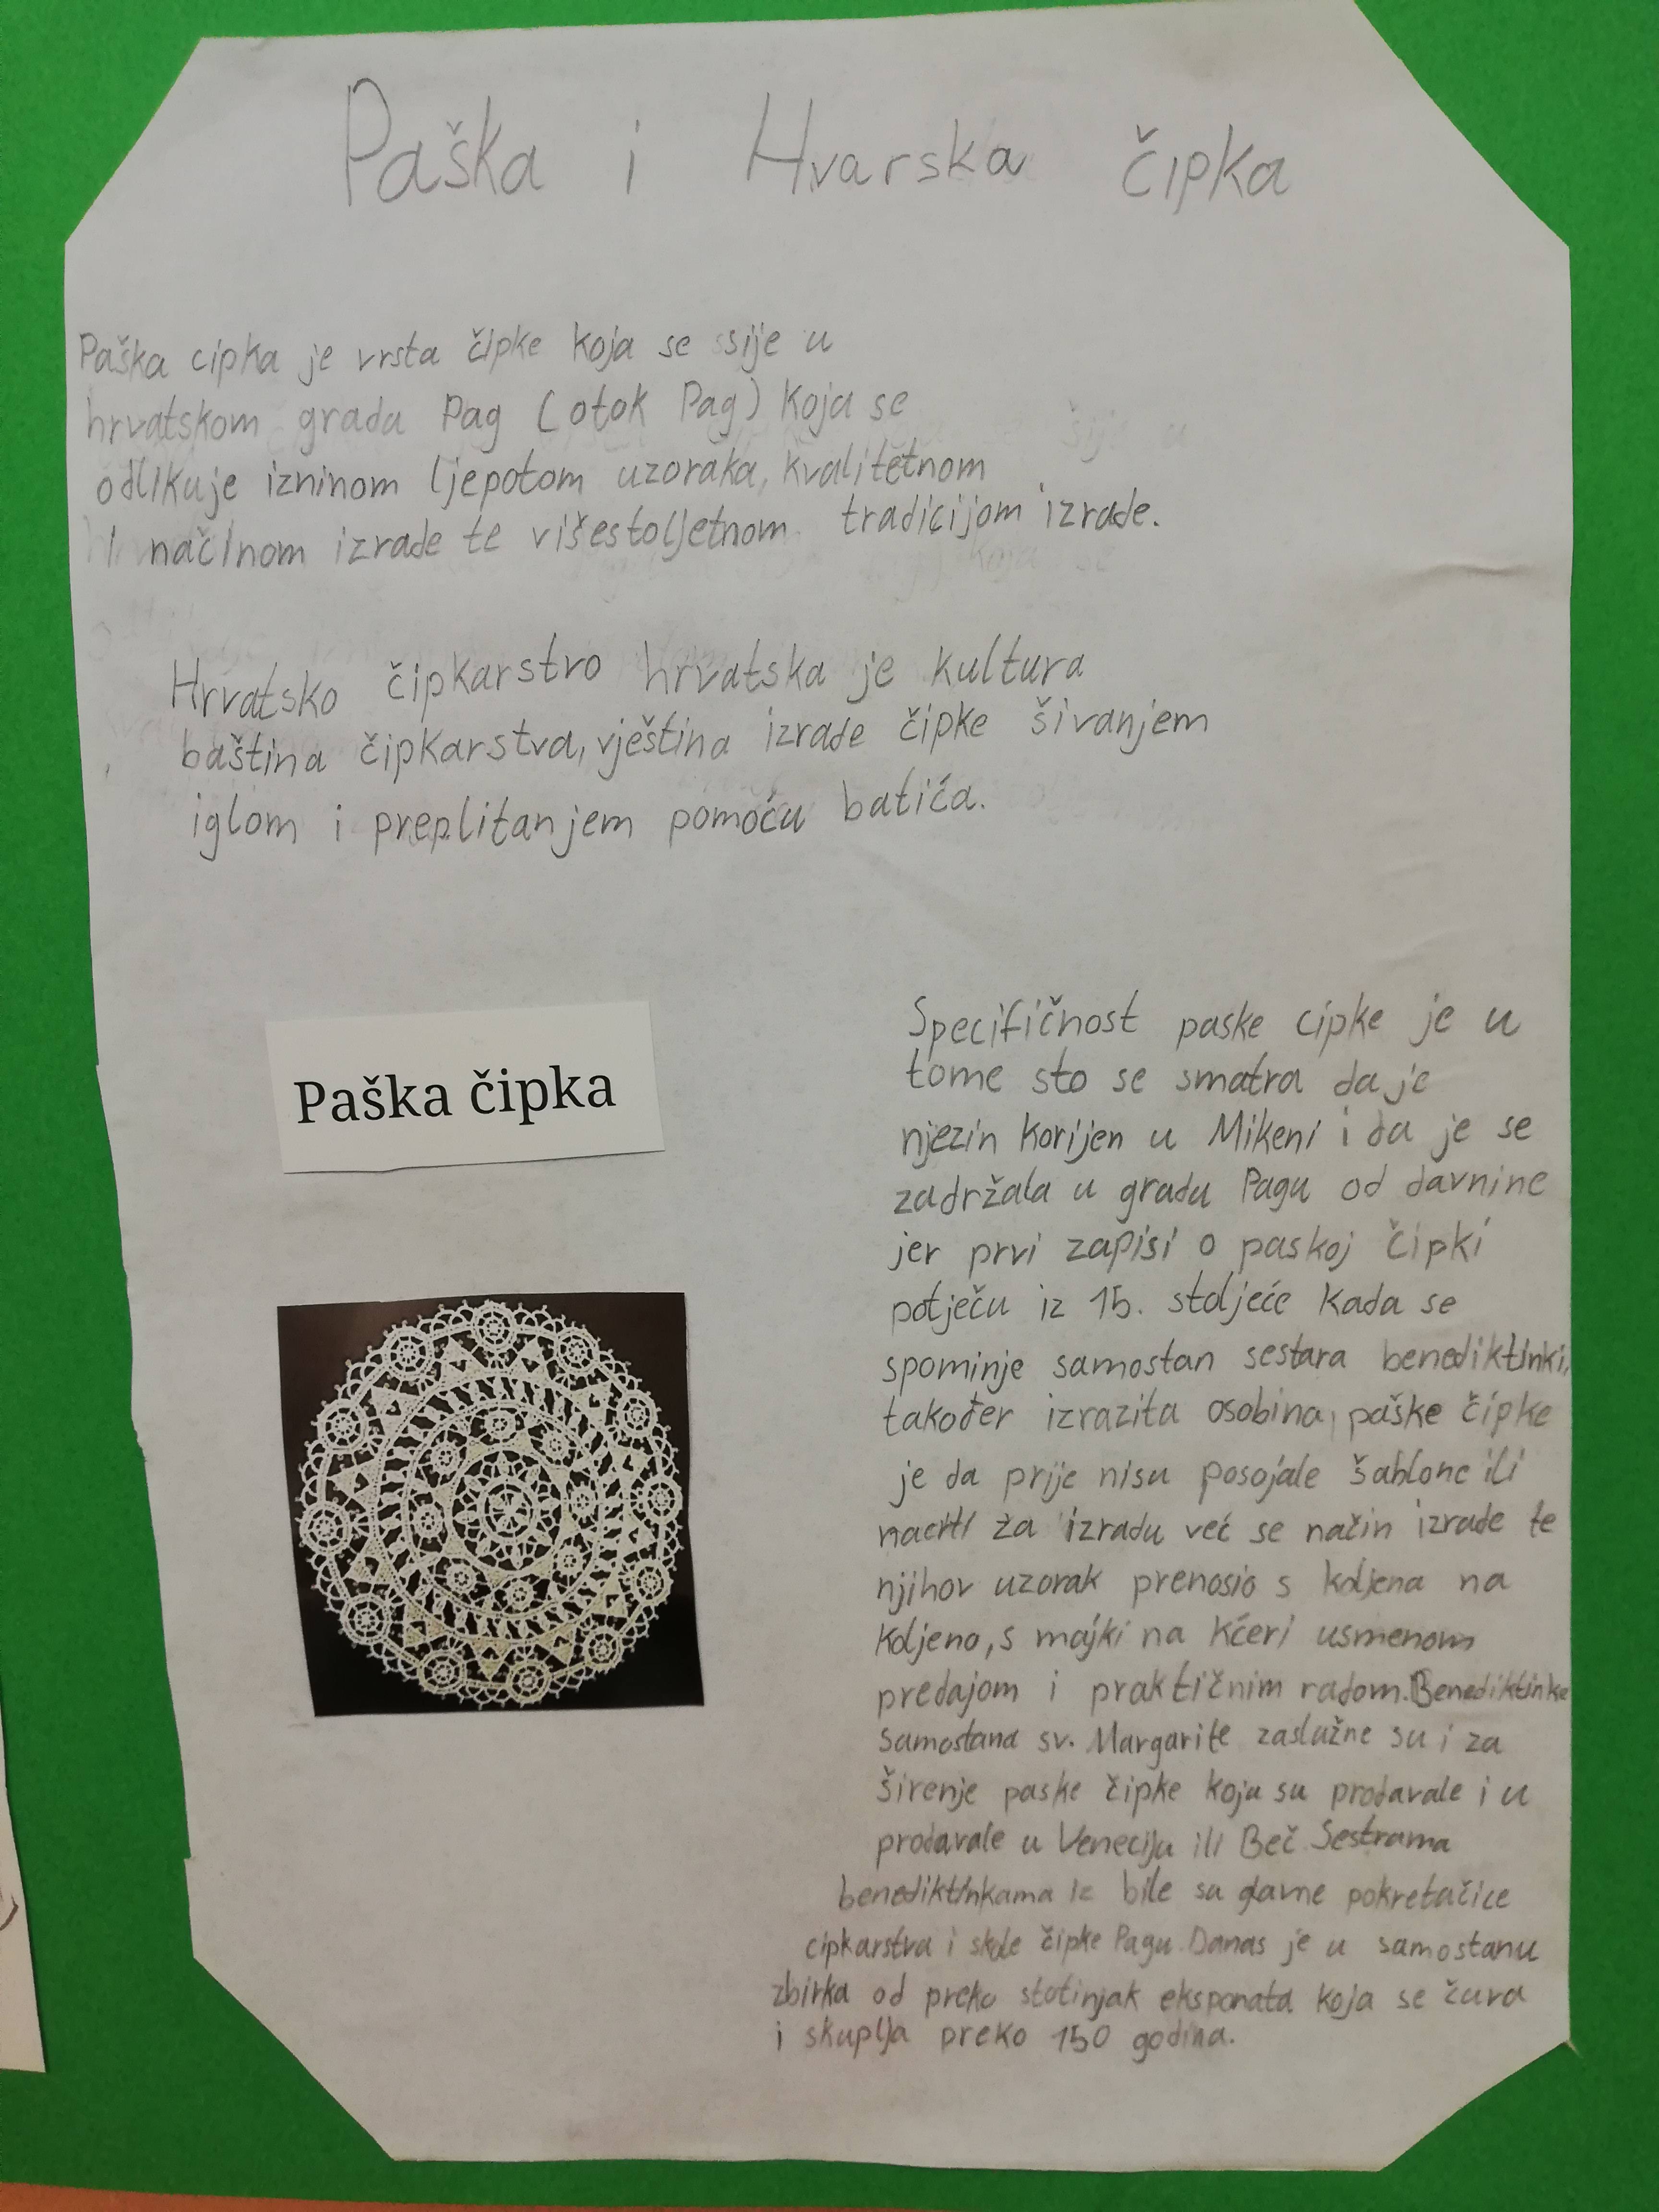 Paška i Hvarska čipka
Paška cipka je vrsta čipke koja se sije u
hrvatskom grada Pag (otok Pag) koja se
odlikuje izninom ljepotom uzoraka, kvalitetnom
i načinom izrade te višestoljetnom tradicijom izrade.
Hrvatsko čipkarstvo hrvatska je kultura
baština čipkarstva, vještina izrade čipke šivanjem
iglom i preplitanjem pomoću batića.
Paška čipka
Specifičnost paske cipke je u
tome sto se smatra da je
njezin korijen u Mikeni i da je se
zadržala u gradu Pagu od davnine
jer prvi zapisi o paskoj čipki
potječu iz 15. stoljeće kada se
spominje samostan sestara benediktinki,
također izrazita osobina, paške čipke
je da prije nisu posojale šablone ili
nacrti za izradu već se način izrade te
njihov uzorak prenosio s koljena na
koljeno, s majki na kćeri usmenom
predajom i praktičnim radom. Benediktinke
samostana sv. Margarite zaslužne su i za
širenje paske čipke koju su prodavale i u
prodavale u Veneciju ili Beč Sestrama
benediktinkama bile su glavne pokretačice
cipkarstva i skole čipke Pagu. Danas je u samostanu
zbirka od preko stotinjak eksponata koja se čuva
i skuplja preko 150 godina.